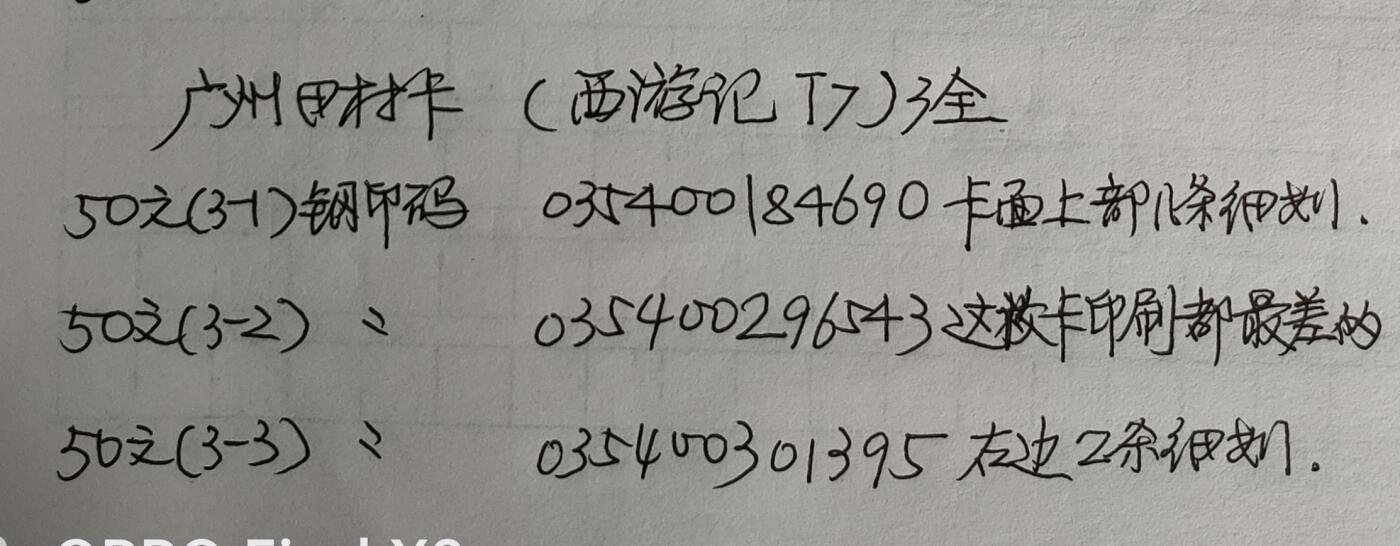 广州田村卡 (西游记 T7) 3全
50元(3-1)钢印码 035400184690 卡面上部1条细划.
50元(3-2) 〃 035400296543 这枚卡印刷都最差的
50元(3-3) 〃 035400301395 左边2条细划.